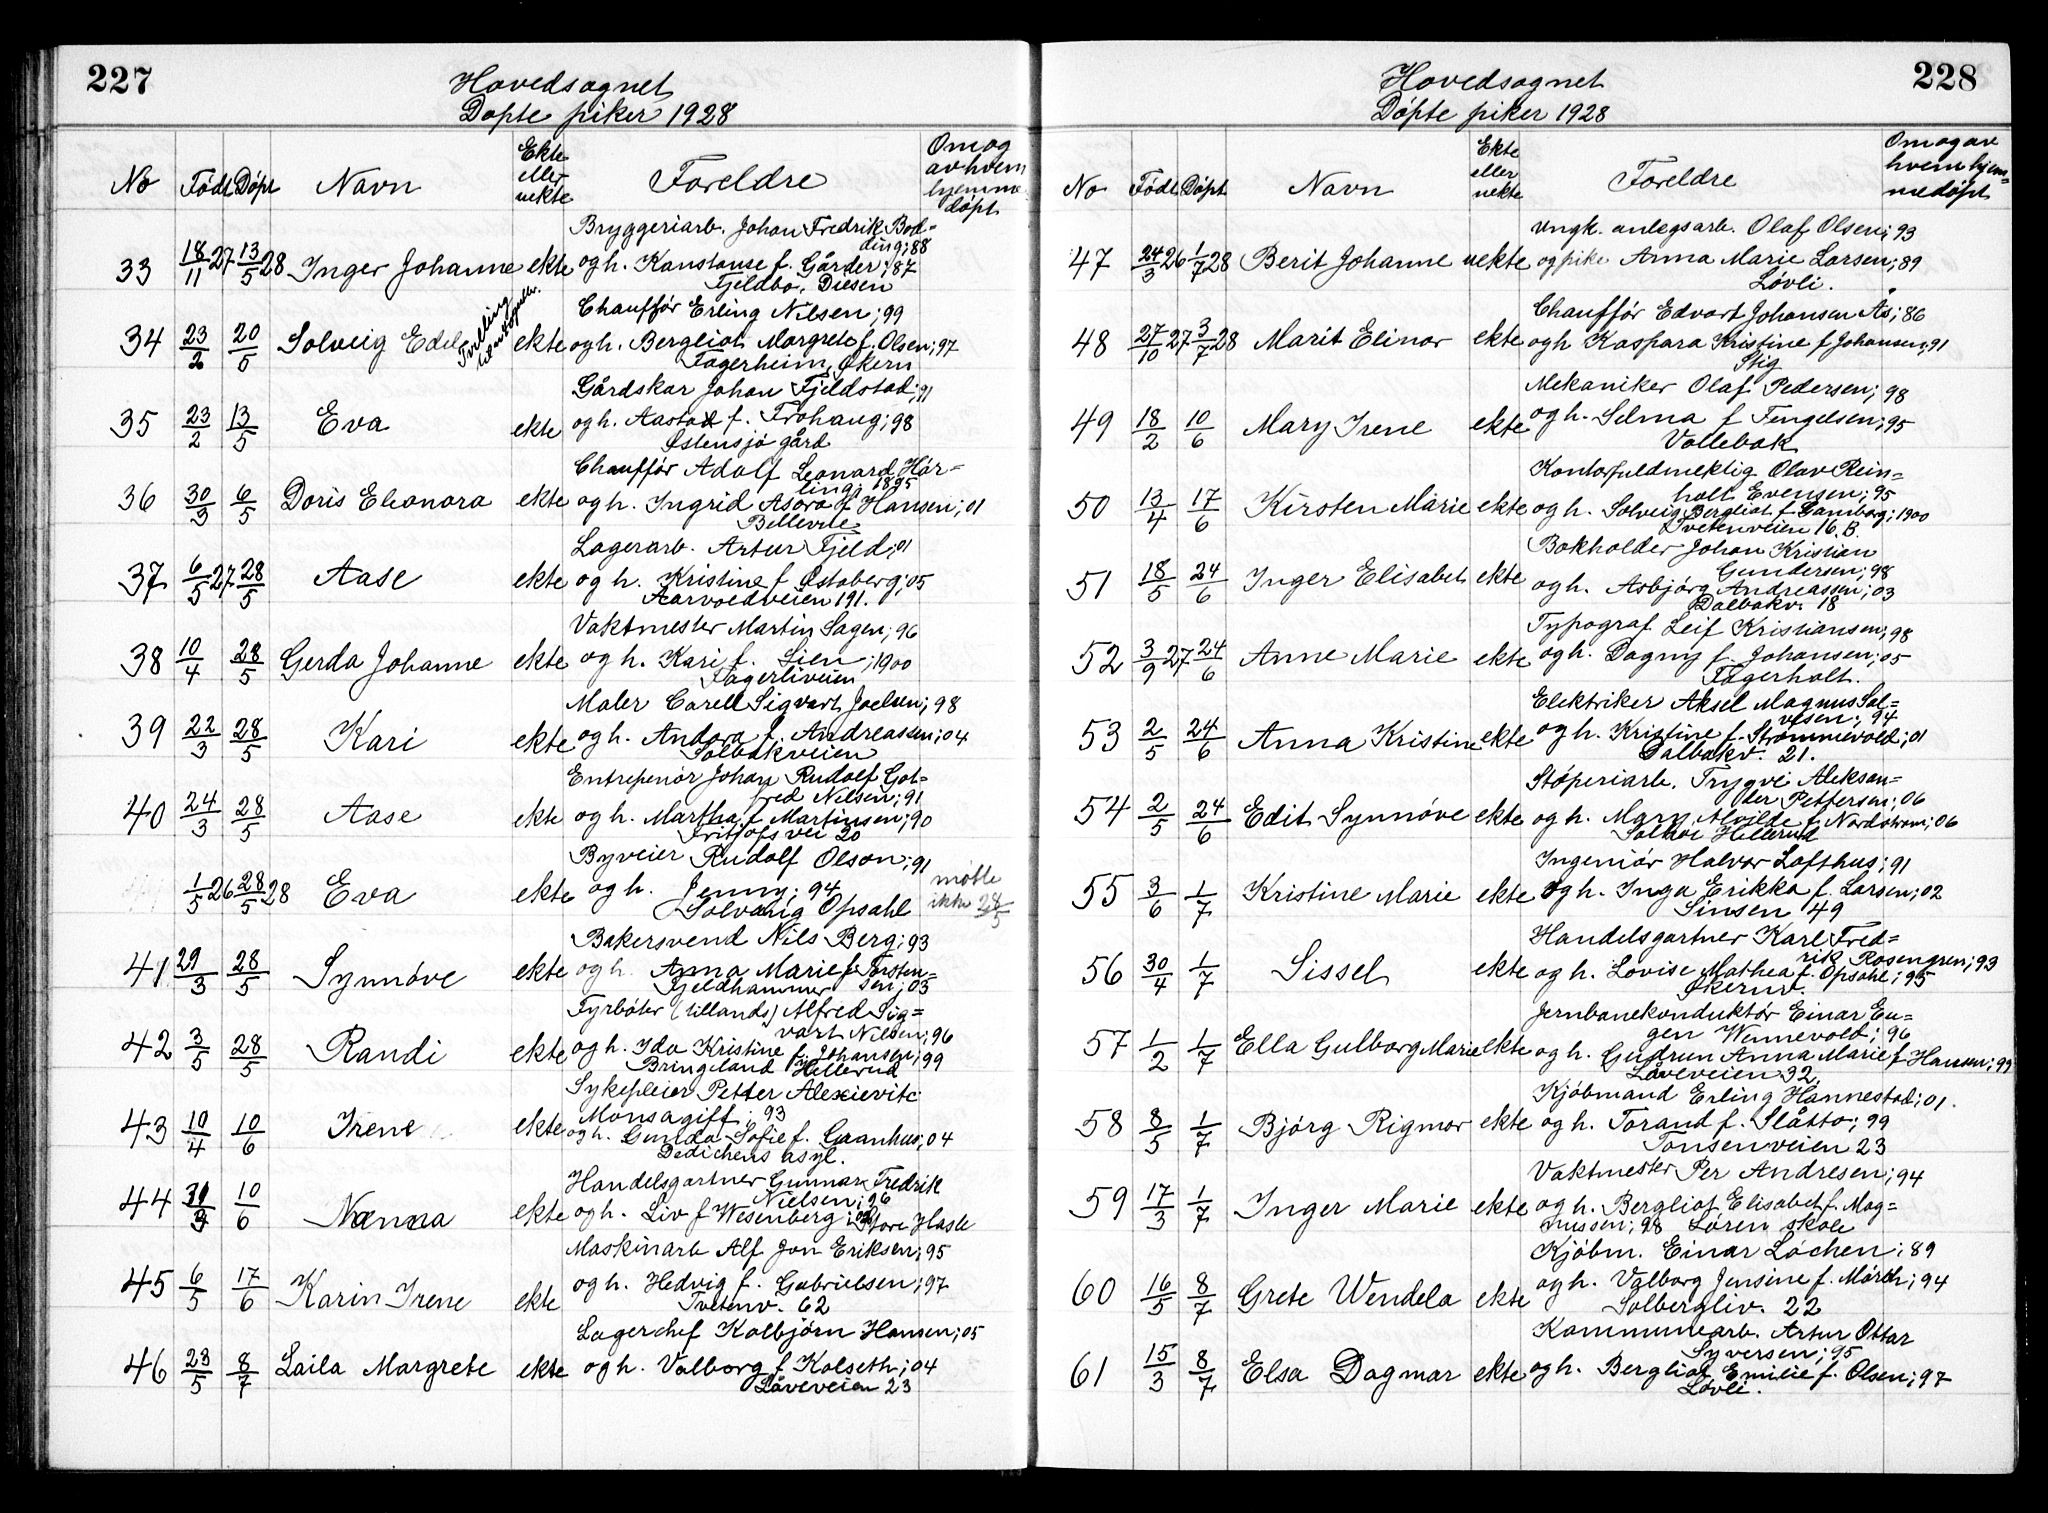 227
Hovedsognet
Døpte piker 1928
No Født Døpt Navn Ekte eller uekte Foreldre Om og av hvem hjemmedøpt
Bryggeriarb. Johan Fredrik Bod=
ding; 88
33 18/11 27 13/5 28 Inger Johanne ekte og h. Konstanse f. Gårder; 87
Gjeldbo, Disen
Chauffør Erling Nilsen; 99
34 23/2 20/5 Solveig Edel Tvilling ekte og h. Bergliot Margrete f. Olsen; 97
Fagerheim, Økern
Gårdskar Johan Fjeldstad; 91
35 23/2 13/5 Eva ekte og h. Aasta f. Frohaug; 98
Østensjø gård
Chauffør Adolf Leonard Här=
ling; 1895
36 30/3 6/5 Doris Eleonora ekte og h. Ingrid Asora f Hansen; 01
Bellevue
Lagerarb. Artur Fjeld; 01
37 6/5 27 28/5 Aase ekte og h. Kristine f Østaberg; 05
Aarvoldveien 191.
Vaktmester Martin Sagen; 96
38 10/4 28/5 Gerda Johanne ekte og h. Kari f. Lien; 1900
Fagerliveien
Maler Carell Sigvart Joelsen; 98
39 22/3 28/5 Kari ekte og h. Andora f. Andreassen; 04
Solbakveien
Entrepenør Johan Rudolf Got=
fred Nilsen; 91
40 24/3 28/5 Aase ekte og h. Martha f Martinsen; 90
Fritjofs vei 20
Byveier Rudolf Olson; 91
1/5 26 28/5 28 Eva ekte og h. Jenny; 94 møtte
Solvang Opsahl ikke 28/5
Bakersvend Nils Berg; 93
41 29/3 28/5 Synnøve ekte og h. Anna Marie f Torsten=
Fjeldhammer sen; 03
Fyrbøter (tillands) Alfred Sig=
vart Nilsen; 96
42 3/5 28/5 Randi ekte og h. Ida Kristine f. Johansen; 99
Bringeland Hellerud
Sykepleier Petter Alexievitc
Monsagiff; 93
43 10/4 10/6 Irene ekte og h. Gunda Sofie f. Gaanhus; 04
Dedichens asyl.
Handelsgartner Gunnar Fredrik
Nielsen; 96
44 10/6 Nanna ekte og h. Liv f Wesenberg; Store Hasle
Maskinarb Alf Jon Eriksen; 95
45 6/5 17/6 Karin Irene ekte og h. Hedvig f. Gabrielsen; 97
Tvetenv. 62
Lagerchef Kolbjørn Hansen; 05
46 23/5 8/7 Laila Margrete ekte og h. Valborg f Kolseth; 04
Låveveien 23
228
Hovedsognet
Døpte piker 1928
No Født Døpt Navn Ekte eller uekte Foreldre Om og av hvem hjemmedøpt
Ungk. anlegsarb. Olaf Olsen; 93
47 24/3 26 1/7 28 Berit Johanne uekte og pike Anna Marie Larsen; 89
Løvli.
Chauffør Edvart Johansen Ås; 86
48 27/10 27 3/7 28 Marit Elinor ekte og h Kaspara Kristine f Johansen; 91
Stig
Mekaniker Olaf Pedersen; 98
49 18/2 10/6 Mary Irene ekte og h. Selma f Tengelsen; 95
Vollebak
Kontorfuldmektig Olav Rein=
holt Evensen; 95
50 13/4 17/6 Kirsten Marie ekte og h. Solveig Bergliot f. Gamborg; 1900
Tvetenveien 16 B.
Bokholder Johan Kristian
Gundersen; 98
51 18/5 24/6 Inger Elisabet ekte og h. Asbjørg Andreassen; 03
Dalbakv. 18
Typograf Leif Kristiansen; 98
52 3/9 27 24/6 Anne Marie ekte og h. Dagny f. Johansen; 05
Fagerholt.
Elektriker Aksel Magnus Sol=
vesen; 94
53 2/5 24/6 Anna Kristine ekte og h. Kristine f. Strømmevold; 01
Dalbakv. 21.
Støperiarb. Trygve Aleksan=
der Pettersen; 06
54 2/5 24/6 Edit Synnøve ekte og h. Mary Alvilde f Nordstrøm; 06
Solhøi Hellerud
Ingeniør Halvor Lofthus; 91
55 3/6 1/7 Kristine Marie ekte og h. Inga Erikka f. Larsen; 02
Sinsen 49
Handelsgartner Karl Fred=
rik Rosengren; 93
56 30/4 1/7 Sissel ekte og h. Lovise Mathea f. Opsahl; 95
Økernv.
Jernbanekonduktør Einar Eu=
gen Wennevold; 96
57 1/2 1/7 Ella Gulborg Marie ekte og h. Gudrun Anna Marie f Hansen; 99
Låveveien 32.
Kjøbmand Erling Hannestad; 01.
58 8/5 1/7 Bjørg Rigmor ekte og h. Torand f. Slåtto; 99
Tonsenveien 23
Vaktmester Per Andresen; 94
59 17/3 1/7 Inger Marie ekte og h. Bergliot Elisabet f. Mag=
nussen; 98 Løren skole
Kjøbm. Einar Løchen; 89
60 16/5 8/7 Grete Wendela ekte og h. Valborg Jensine f. Mørch; 94
Solbergliv. 22
Kommunearb. Artur Ottar
Syversen; 95
61 15/3 8/7 Elsa Dagmar ekte og h. Bergliot Emilie f. Olsen; 97
Løvli.